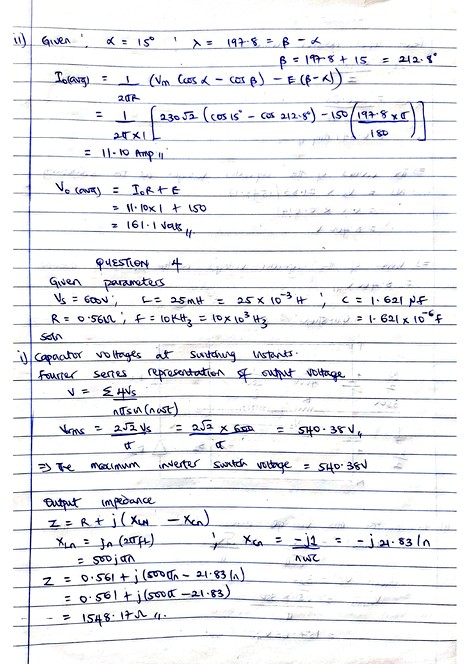 ii) Given : α = 15° ; λ = 197.8 = β - α
β = 197.8 + 15 = 212.8°
Io(avg) = 1/2πR (Vm (cos α - cos β) - E (β - α)) =
= 1/2π×1 [230√2 (cos 15° - cos 212.8°) - 150 (197.8 × π/180)]
= 11.10 Amp //
Vo (avg) = IoR + E
= 11.10×1 + 150
= 161.1 Volts //
QUESTION 4
Given parameters
Vs = 600V ; L = 25mH = 25 × 10⁻³ H ; C = 1.621 μf
R = 0.56Ω ; f = 10KHz = 10×10³ Hz = 1.621 × 10⁻⁶ f
Soln
i) Capacitor voltages at switching instants.
Fourier series representation of output voltage
V = Σ 4Vs / nπ sin (nωt)
Vrms = 2√2 Vs / π = 2√2 × 600 / π = 540.38 V //
⇒ The maximum inverter switch voltage = 540.38V
Output impedance
Z = R + j (XLn - Xcn)
XLn = jn (2πfL) ; Xcn = -j1/nωc = -j 21.83/n
= 500jπn
Z = 0.561 + j (500πn - 21.83/n)
= 0.561 + j (500π - 21.83)
= 1548.17 Ω //.